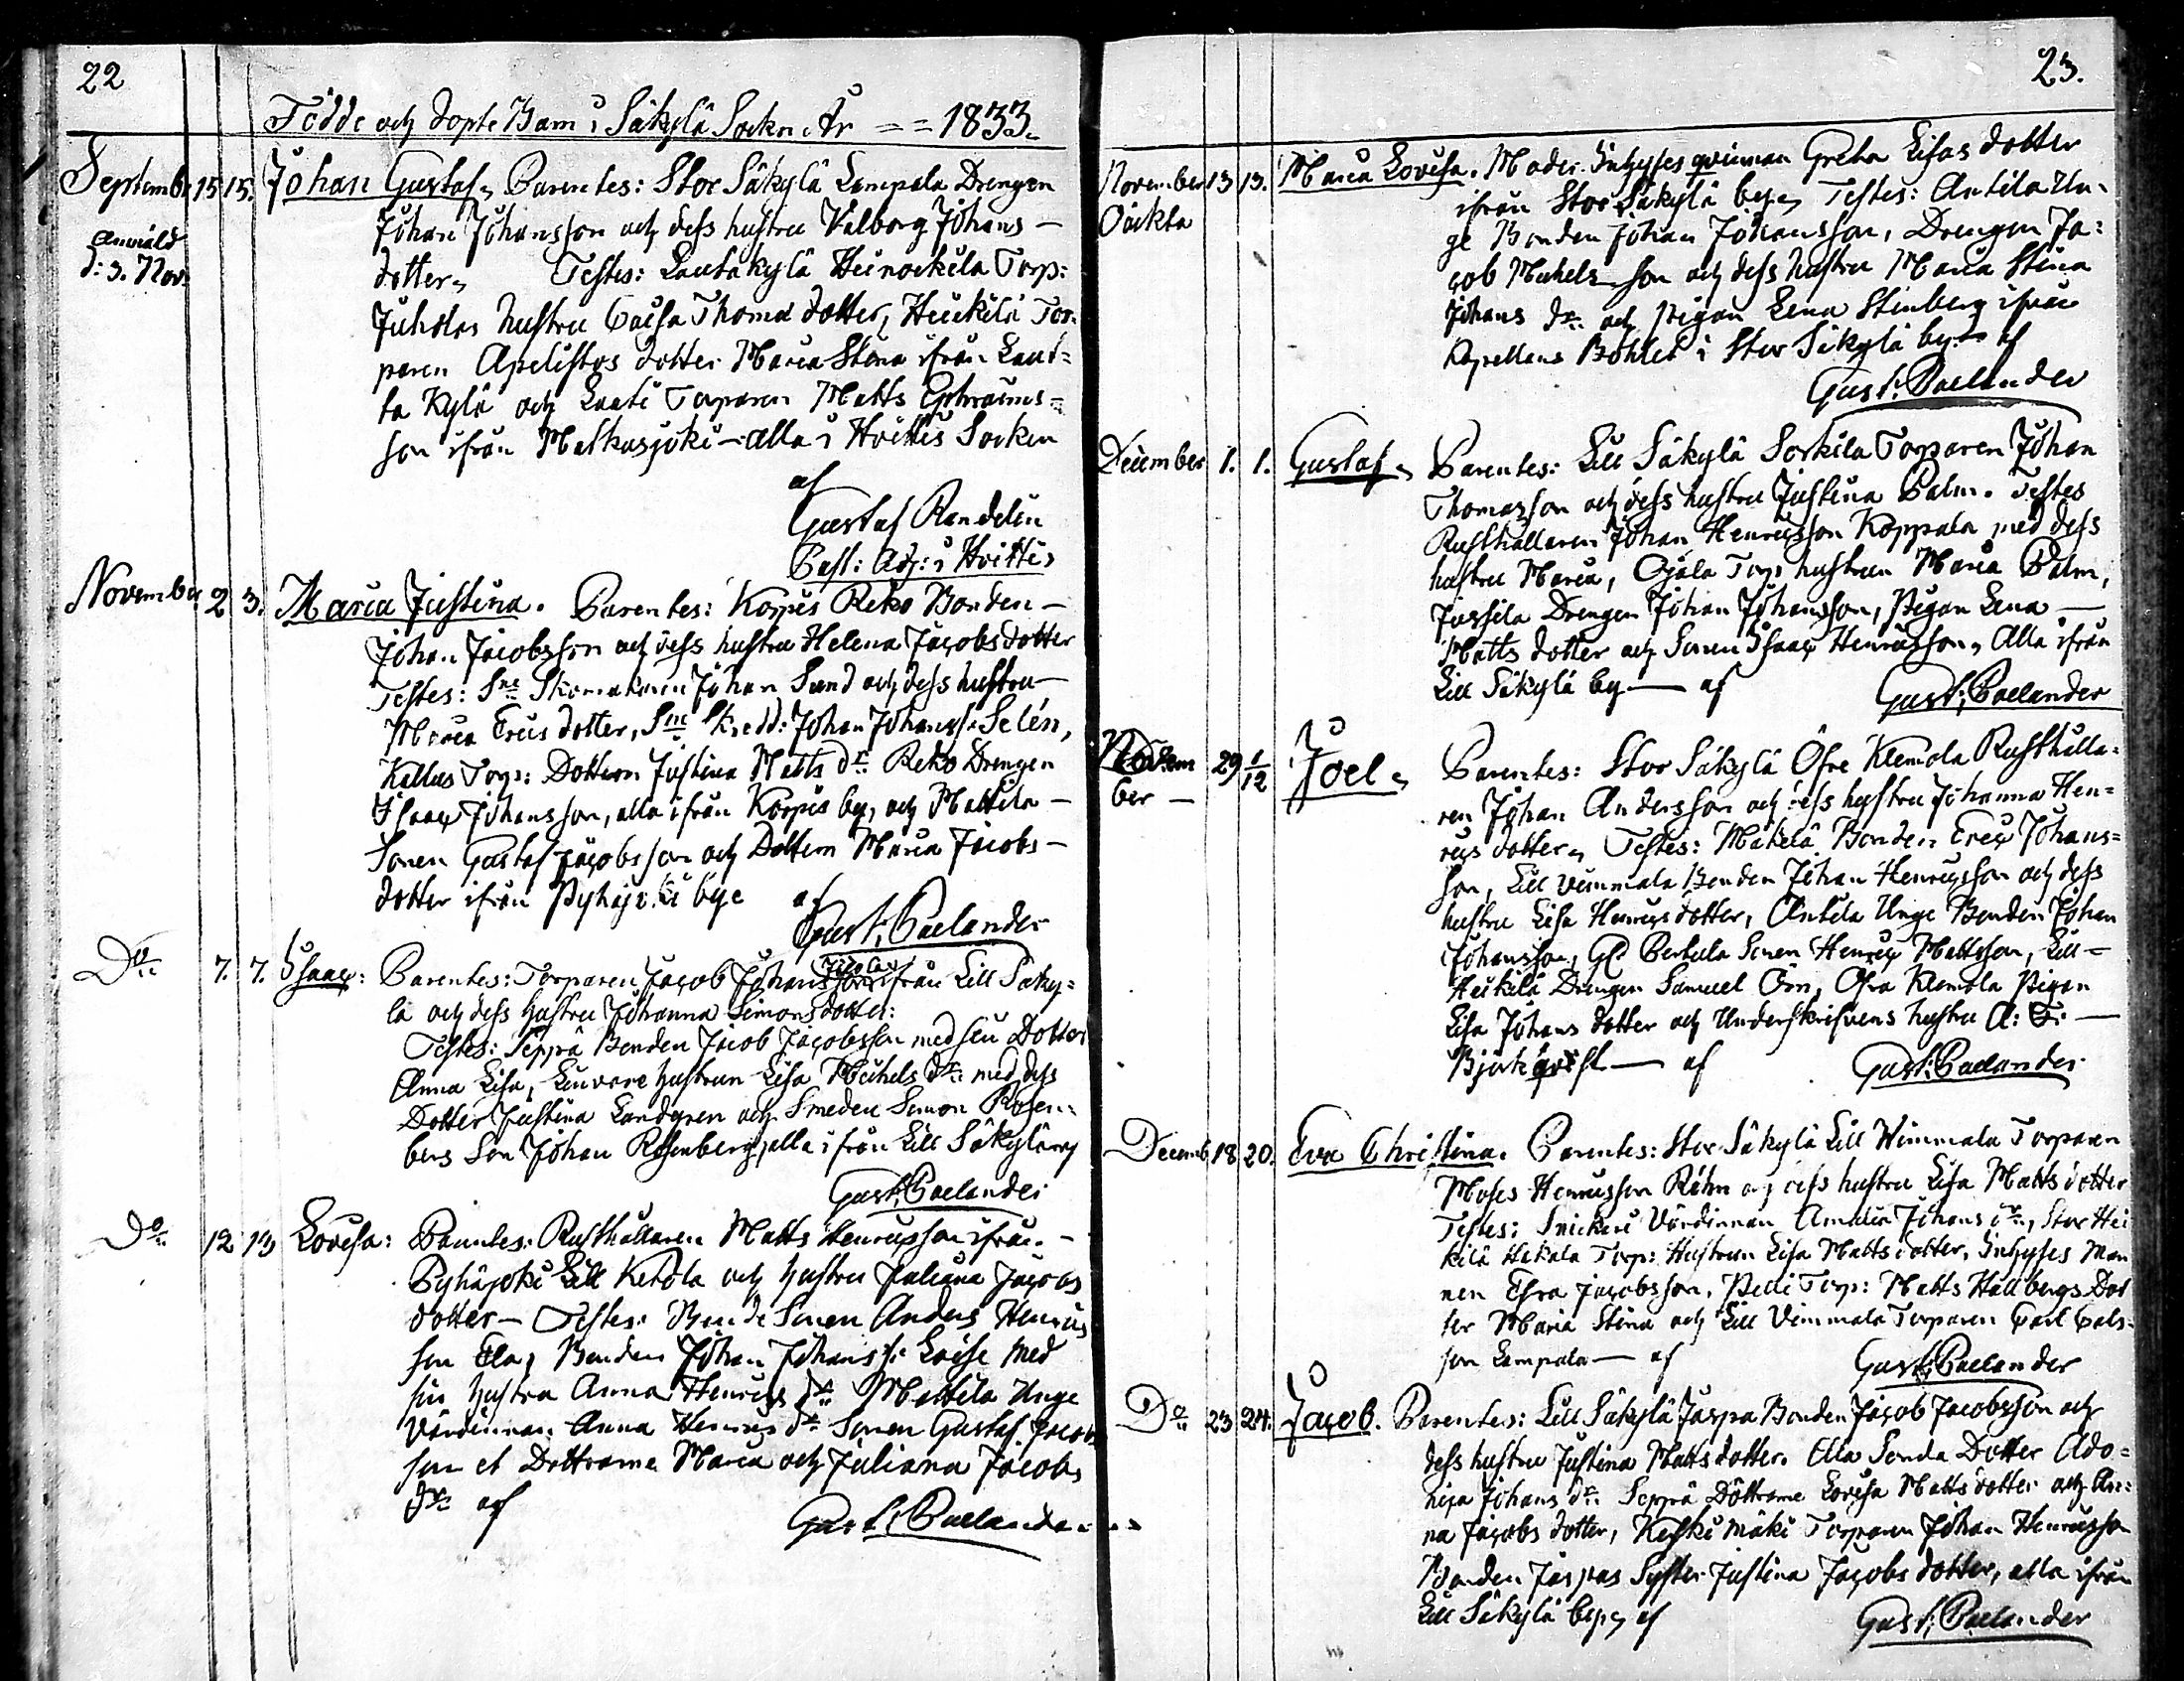 22
Födde och döpte Barn i Säkylä Sockn År == 1833.
September 15 15. Johan Gustaf, Parentes: Stor Säkylä Lampala Drengen
Johan Johansson och dess hustru Valborg Johans-
Anmäld
d: 3. Nov.
dotter, Testes: Lautakylä Heinoickila Torp:
Juholas hustru Caisa Thomæ dotter, Heickilä Tor-
paren Apelistos dotter Maria Stina ifrån Laut=
ta Kylä och Lauti Torparen Matts Ephraims=
son ifrån Matkusjoki - alla i Hvittis Socken
af
Gustaf Randelin
Past: Adj: i Hvittis
November 2 3. Maria Justina. Parentes: Korpis Reko Bonden-
Johan Jacobsson och dess hustru Helena Jacobsdotter
Testes: Sne Skomakaren Johan Sund och dess hustru-
Maria Erics dotter, Sne Skredd: Johan Johanss: Selén,
Kallus Torp: Dottern Justina Matts dr Reko Drengen
Isaac Johansson, alla ifrån Korpis by, och Mattila-
Sonen Gustaf Jacobsson och Dottern Maria Jacobs-
dotter ifrån Pyhäjoki bye af
Gust: Paelander
Do 7. 7. Isaac: Parentes: Torparen Jacob Johansson ifrån Lill Säky=
lä och dess hustru Johanna Simonsdotter:
Testes: Seppä Bonden Jacob Jacobsson med sin Dotter
Anna Lisa, hustrun Lisa Michels dr: med dess
Dotter Justina Landgren och Smeden Simon Rosen=
bergs Son Johan Rosenberg, alla ifrån Lill Säkylä af
Gust: Paelander
Do 12 13 Lovisa: Parentes: Rusthållaren Matts Henricsson ifrån-
Pyhäjoki Lill Ketola och hustru Juliana Jacobs
dotter - Testes: Bonde Sonen Anders Henrics
son Eloy, Bonden Johan Johanss: Loise med
sin hustru Anna Henrics dr Mattila Unge
Värdinnan Anna Henrics dr Sonen Gustaf Jacobs
son et Döttrarne Maria och Juliana Jacobs
dr: af
Gust: Paelander
23.
November 13 13. Maria Lovisa. Mader. Inhyses qvinnan Greta Lisas dotter
Oäckta
ifrån Stor Säkylä by, Testes: Antila Un-
ge Bonden Johan Johansson, Drengen Ja=
cob Michels son och dess hustru Maria Stina
Johans dr: och Pigan Lena Stenberg ifrån
Kapellans Bohlet i Stor Säkylä by - af
Gust: Paelander
December 1. 1. Gustaf, Parentes: Lill Säkylä Sorkila Torparen Johan
Thomasson och dess hustru Justina Palm. Testes
Rusthållaren Johan Henricsson Koppala med dess
hustru Maria, Ojala Torp: hustrun Maria Palm,
Jussila Drengen Johan Johansson, Pigan Lena -
Matts dotter och Sonen Isaac Henricsson, Alla ifrån
Lill Säkylä by - af Gust: Paelander
Novem
ber - 29 1/12 Joel, Parentes: Stor Säkylä Öfre Klemola Rusthålla-
ren Johan Andersson och dess hustru Johanna Hen=
rics dotter, Testes: Mäkelä Bonden Eric Johans=
son, Lill Vimmala Bonden Johan Henricsson och dess
hustru Lisa Henrics dotter, Antila Unge Bonden Johan
Johansson, Gl. Pertula Sonen Henric Mattsson, Lill-
Heikilä Drengen Samuel Örn, Öfra Klemola Pigan
Lisa Johans dotter och Underskrifvens hustru A: F: -
Björkqvist - af Gust: Paelander
Decemb 18 20. Eva Christina. Parentes: Stor Säkylä Lill Wimmala Torparen
Moses Henricsson Röhn och dess hustru Lisa Matts dotter
Testes: Snickeri Värdinnan Amalia Johans dr:, Stor Hei
kilä Hakala Torp: Hustrun Lisa Matts dotter, Inhyses Man
nen Esra Jacobsson, Pelli Torp: Matts Hallbergs Dot
ter Maria Stina och Lill Vimmala Torparen Carl Cals-
son Lampala - af Gust: Paelander
Do 23 24. Jacob. Parentes: Lill Säkylä Jaspa Bonden Jacob Jacobsson och
dess hustru Justina Matts dotter. Ella Sonda Dotter Ado=
niga Johans dr: Seppä Döttrarne Lovisa Matts dotter och An=
na Jacobs dotter, Keski Mäki Torparen Johan Henricsson
Bonden Jaspas Syster Justina Jacobs dotter, alla ifrån
Lill Säkylä by, af Gust: Paelander